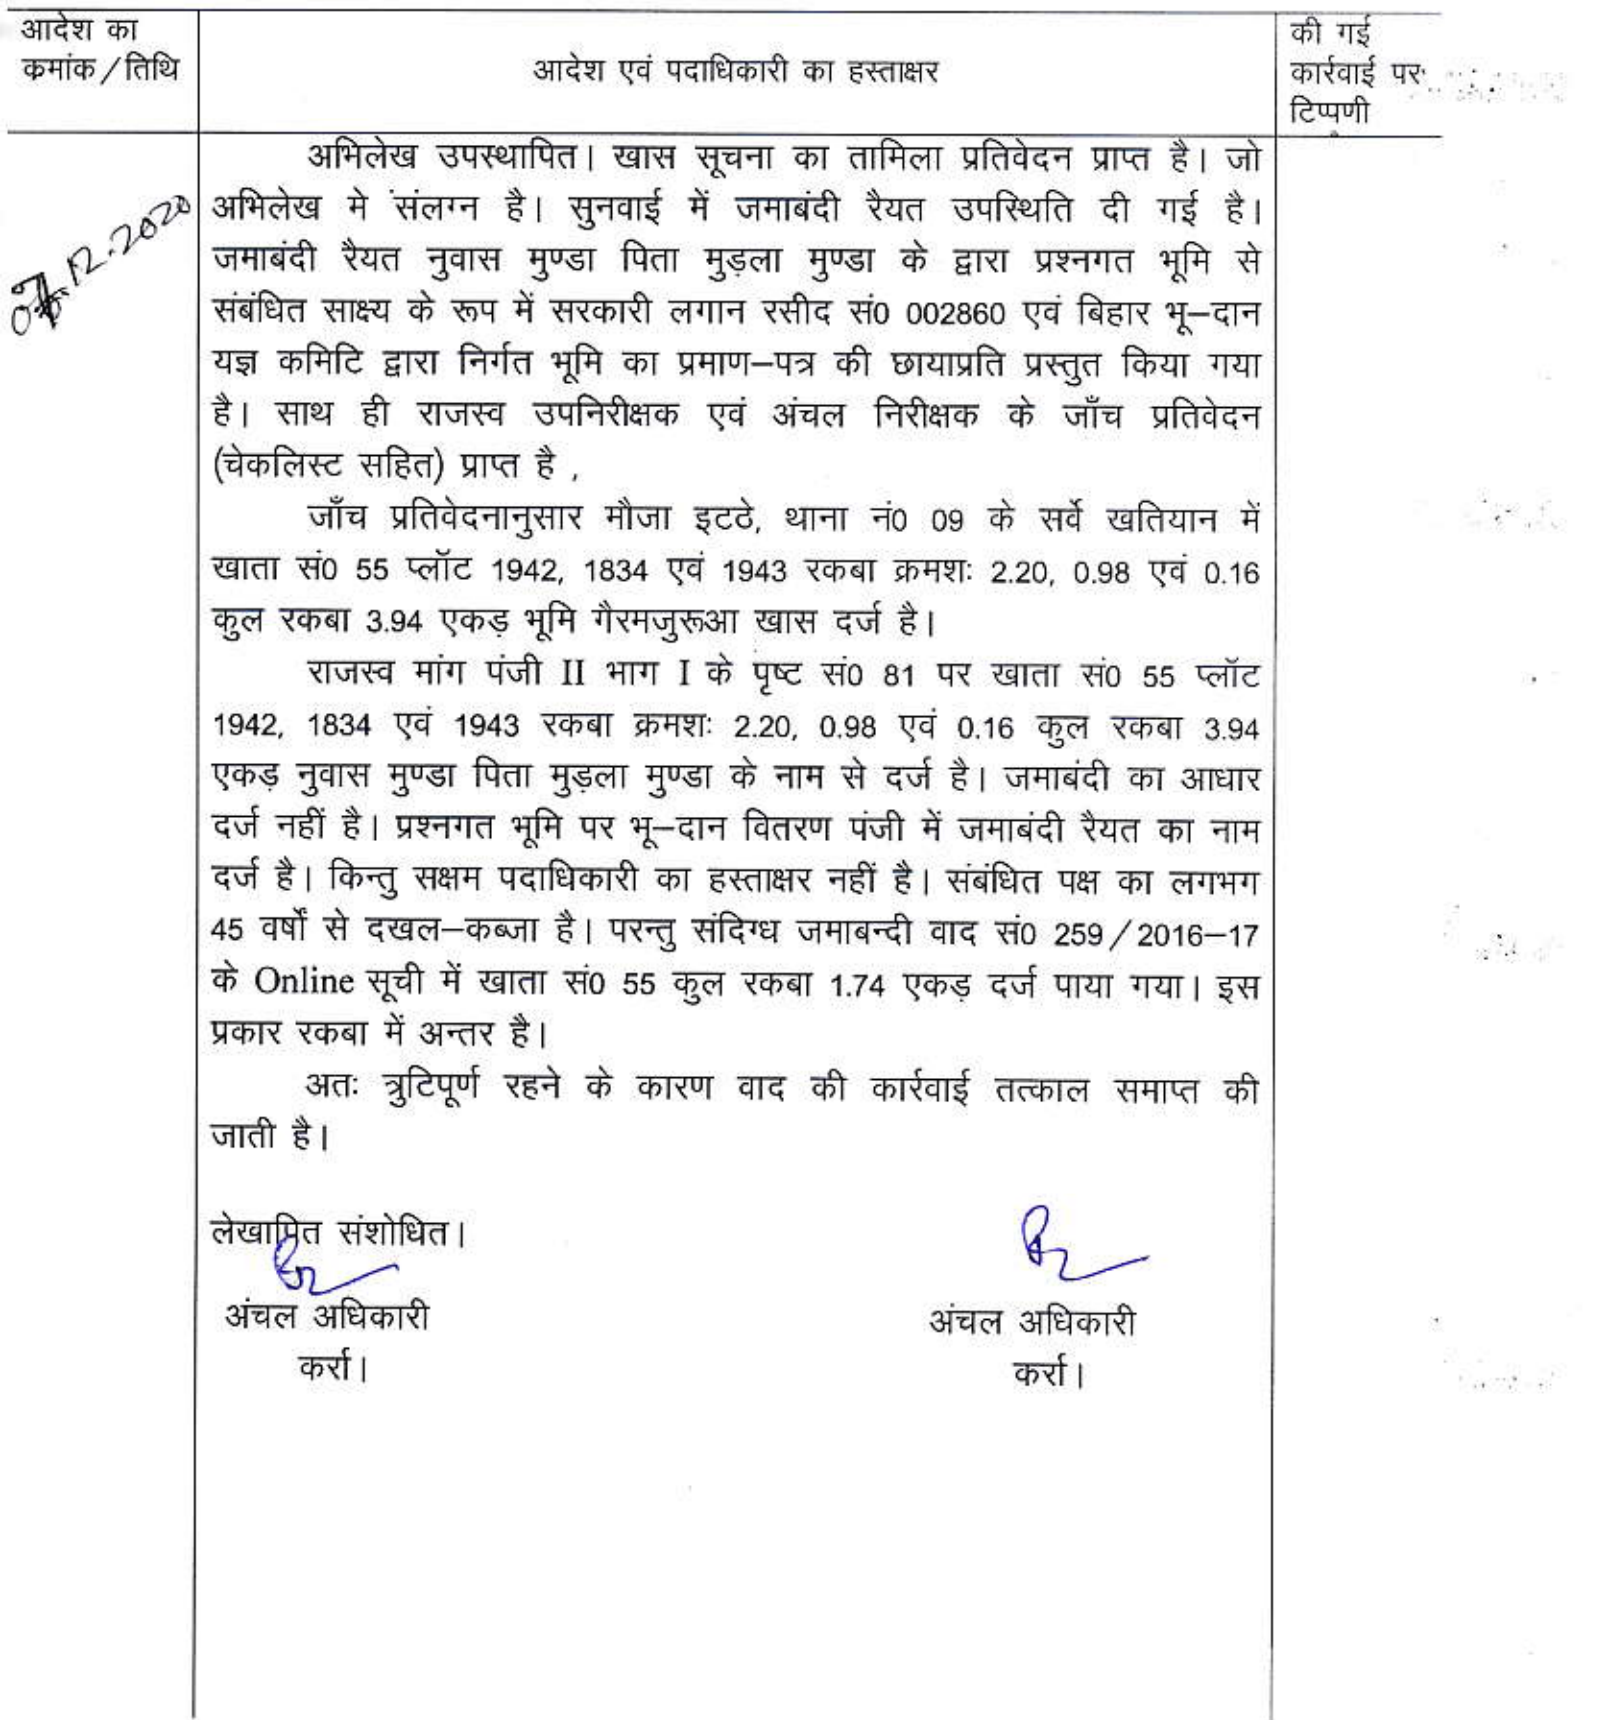 आदेश का
कमांक / तिथि
आदेश एवं पदाधिकारी का हस्ताक्षर
की गई
कार्रवाई पर
टिप्पणी
07.12.2020
अभिलेख उपस्थापित। खास सूचना का तामिला प्रतिवेदन प्राप्त है। जो
अभिलेख मे संलग्न है। सुनवाई में जमाबंदी रैयत उपस्थिति दी गई है।
जमाबंदी रैयत नुवास मुण्डा पिता मुड़ला मुण्डा के द्वारा प्रश्नगत भूमि से
संबंधित साक्ष्य के रूप में सरकारी लगान रसीद सं0 002860 एवं बिहार भू–दान
यज्ञ कमिटि द्वारा निर्गत भूमि का प्रमाण–पत्र की छायाप्रति प्रस्तुत किया गया
है। साथ ही राजस्व उपनिरीक्षक एवं अंचल निरीक्षक के जाँच प्रतिवेदन
(चेकलिस्ट सहित) प्राप्त है ,
जाँच प्रतिवेदनानुसार मौजा इटठे, थाना नं0 09 के सर्वे खतियान में
खाता सं0 55 प्लॉट 1942, 1834 एवं 1943 रकबा क्रमशः 2.20, 0.98 एवं 0.16
कुल रकबा 3.94 एकड़ भूमि गैरमजुरूआ खास दर्ज है।
राजस्व मांग पंजी II भाग I के पृष्ट सं0 81 पर खाता सं0 55 प्लॉट
1942, 1834 एवं 1943 रकबा क्रमशः 2.20, 0.98 एवं 0.16 कुल रकबा 3.94
एकड़ नुवास मुण्डा पिता मुड़ला मुण्डा के नाम से दर्ज है। जमाबंदी का आधार
दर्ज नहीं है। प्रश्नगत भूमि पर भू–दान वितरण पंजी में जमाबंदी रैयत का नाम
दर्ज है। किन्तु सक्षम पदाधिकारी का हस्ताक्षर नहीं है। संबंधित पक्ष का लगभग
45 वर्षों से दखल–कब्जा है। परन्तु संदिग्ध जमाबन्दी वाद सं0 259 / 2016–17
के Online सूची में खाता सं0 55 कुल रकबा 1.74 एकड़ दर्ज पाया गया। इस
प्रकार रकबा में अन्तर है।
अतः त्रुटिपूर्ण रहने के कारण वाद की कार्रवाई तत्काल समाप्त की
जाती है।
लेखापित संशोधित।
अंचल अधिकारी
कर्रा।
अंचल अधिकारी
कर्रा।